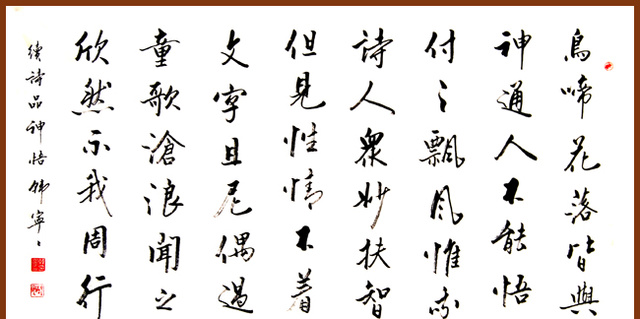 鳥啼花落皆與
神通人不能悟
付之飄風惟我
詩人眾妙扶智
但見性情不着
文字且尼偶過
童歌滄浪聞之
欣然示我周行
續詩品神悟韩寧〻